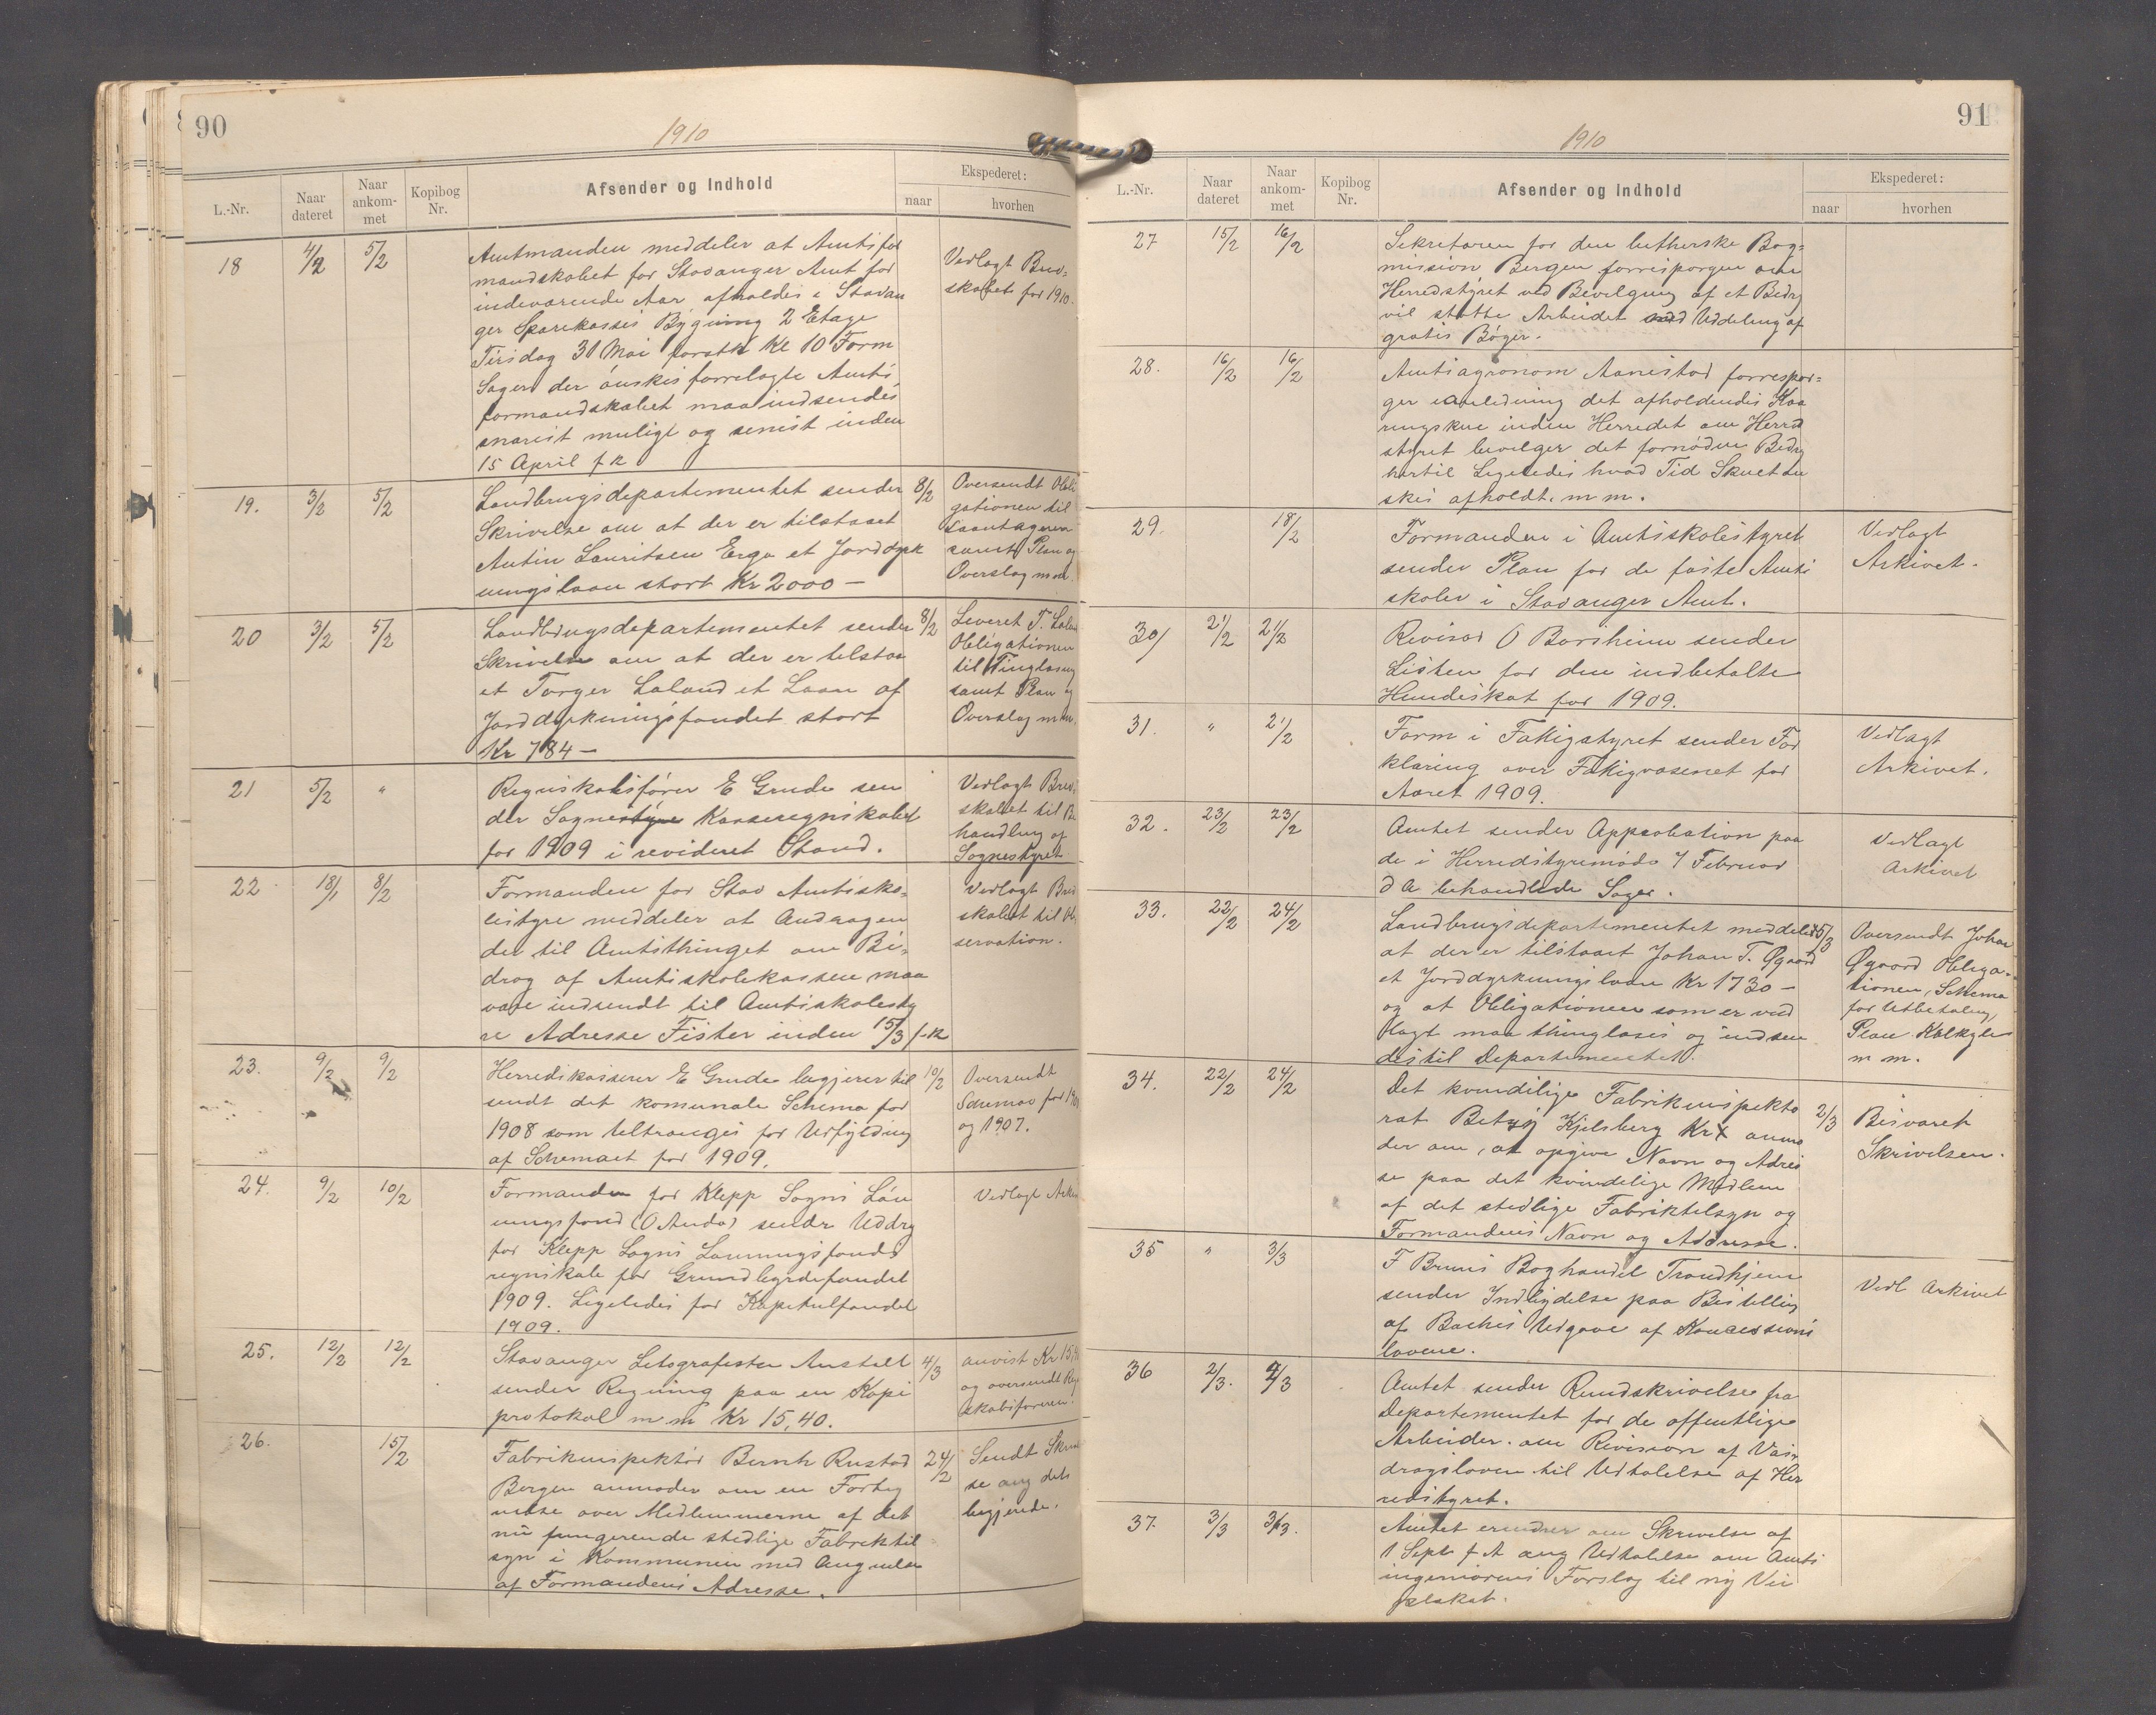 90
1910
L.-Nr.
Naar dateret
Naar ankom-met
Kopibog Nr.
Afsender og Indhold
Ekspederet:
naar
hvorhen
18 4/2 5/2 Amtmanden meddeler at Amtsfor
mandskabet for Stavanger Amt for
indeværende Aar afholdes i Stavan
ger Sparekasses Bygning 2 Etage
Tirsdag 31 Mai førstk Kl 10 Form
Sager der ønskes forrelagte Amts
formandskabet maa indsendes
snarest muligt og senest inden
15 April f k
Vedlagt Bud-
skabet for 1910.
19. 3/2 5/2 Landbrugsdepartementet sender 8/2
Skrivelse om at der er tilstaaet
Autin Lauritsen Erga et Jorddyrk
ningslaan stort Kr 2000 —
Oversendt Obli
gationen til
Laantageren
samt Plan og
Overslag m m.
20 3/2 5/2 Landbrugsdepartementet sender 8/2
Skrivelse om at der er tilstaa
et Torger Laland et Laan af
Jorddyrkningsfondet stort
Kr 784 —
Leveret T. Lalan
Obligationen
til Tinglæsning
samt Plan og
Overslag m m.
21 5/2 " Regnskabsfører E Grude sen
der Sognestyre Kasseregnskabet
for 1909 i revideret Stand.
Vedlagt Bud
skabet til Be
handling af
Sognestyret
22 18/1 8/2 Formanden for Stav Amtssko-
lestyre meddeler at Andragen
der til Amtsthinget om Bi-
drag af Amtsskolekassen maa
være indsendt til Amtsskolesty
re Adresse Fister inden 15/3 f k
Vedlagt Bud
skabet til Ob
servation.
23. 9/2 9/2 Herredskasserer E Grude begjerer til 10/2
sendt det komunale Schema for
1908 som tiltrænges for Udfylding
af Schemaet for 1909.
Oversendt
Schemaer for 190
og 1907.
24. 9/2 10/2 Formanden for Klepp Sogns Løn
ningsfond (O Anda) sender Uddrg
for Klepp Sogns Lønningsfonds
regnskab for Grundlegdefondet
1909. Ligeledes for Kapitalfondet
1909.
Vedlagt Arkiv
25. 12/2 12/2 Stavanger Litografiske Anstalt 4/3
sender Regning paa en Kopi
protokol m m Kr 15,40.
anvist Kr 15,4
og oversendt Reg
skabsføreren.
26. 15/2 Fabrikinspektør Bernh Rustad 24/2
Bergen anmoder om en Forteg
nelse over Medlemmerne af det
nu fungerende stedlige Fabriktil-
syn i Kommunen med Angivelse
af Formandens Adresse.
Sendt Skrivel
se ang det
begjerede.
91
1910
L.-Nr.
Naar dateret
Naar ankom-met
Kopibog Nr.
Afsender og Indhold
Ekspederet:
naar
hvorhen
27 15/2 16/2 Sekretæren for den lutherske Bog-
mission Bergen forrespørger om
Herredstyret ved Bevilgning af et Bidrg
vil støtte Arbeidet ved Uddeling af
gratis Bøger.
28. 16/2 16/2 Amtsagronom Aanestad forrespør-
ger i anledning det afholdendes Kaa
ringskue inden Herredet om Herred
styret bevilger det fornødne Bidrg
hertil Ligeledes hvad Tid Skuet øn
skes afholdt. m m.
29. 18/2 Formanden i Amtsskolestyret
sender Plan for de faste Amts
skoler i Stavanger Amt.
Vedlagt
Arkivet.
30/ 21/2 21/2 Revisor O Borsheim sender
Listen for den indbetalte
Hundeskat for 1909.
31. " 21/2 Form i Fattigstyret sender For
klaring over Fattigvæsenet for
Aaret 1909.
Vedlagt
Arkivet.
32. 23/2 23/2 Amtet sender Approbation paa
de i Herredstyremøde 7 Februar
d A behandlede Sager.
Vedlagt
Arkivet
33. 22/2 24/2 Landbrugsdepartementet meddeler 5/3
at der er tilstaaet Johan T. Øgaard
et Jorddyrkningslaan Kr 1730 —
og at Obligationen som er ved
lagt maa thinglæses og indsen
des til Departementet.
Oversendt Johan
Øgaard Obliga-
tionen, Schema
for Utbetaling,
Plan Kalkyle
m m.
34. 22/2 24/2 Det kvindelige Fabrikinspekto
rat Betzy Kjelsberg Kr x anmo
der om, at opgive Navn og Adres
se paa det kvindelige Medlem
af det stedlige Fabriktilsyn og
Formandens Navn og Addresse.
2/3 Besvaret
Skrivelsen.
35 " 3/3 F Bruns Boghandel Trondhjem
sender Indbydelse paa Bestilling
af Baches Udgave af Koncessions
lovene.
Vedl Arkivet
36 2/3. 4/3 Amtet sender Rundskrivelse fra
Departementet for de offentlige
Arbeider. om Revision af Vas-
dragsloven til Udtalelse af Her
redstyret.
37. 3/3 3/3. Amtet erindrer om Skrivelse af
1 Sept f A ang Udtalelse om Amts
ingeniørens Forslag til ny Vei
plakat.